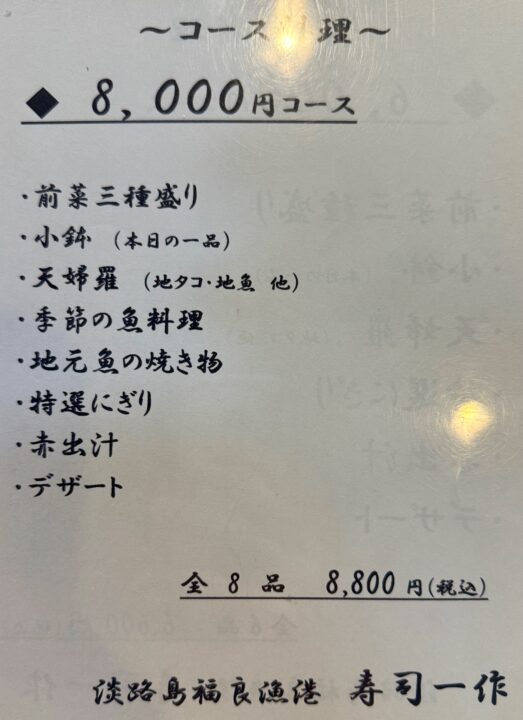 ～コース料理～
◆ 8,000円コース
・前菜三種盛り
・小鉢 (本日の一品)
・天婦羅 (地タコ・地魚 他)
・季節の魚料理
・地元魚の焼き物
・特選にぎり
・赤出汁
・デザート
全 8 品 8,800 円(税込)
淡路島福良漁港 寿司一作